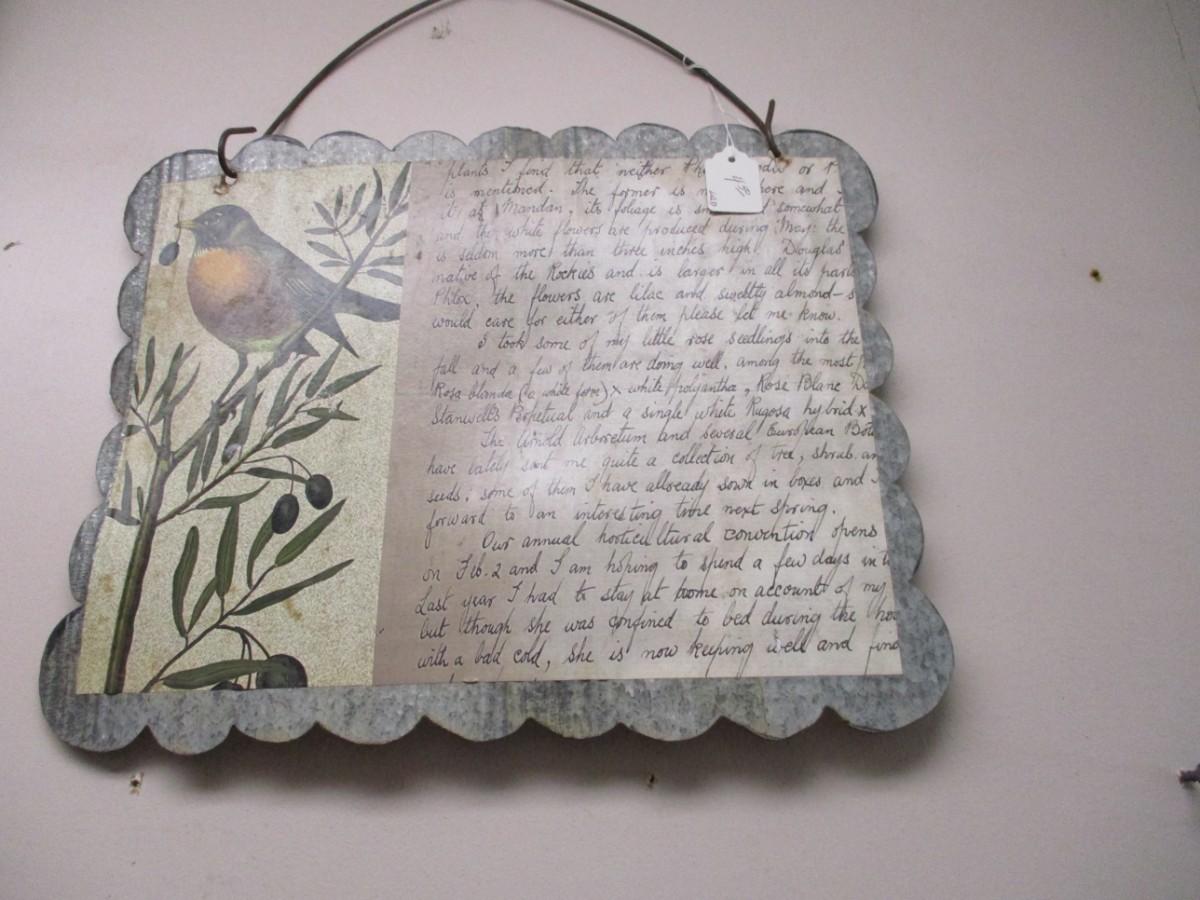 plants I find that neither Ph or
is mentioned. The former is n here and
it at Mandan, its foliage is sm d somewhat
and the white flowers are produced during May: the
is seldom more than three inches high. Douglas
native of the Rockies and is larger in all its parts
Phlox, the flowers are lilac and sweetly almond-s
would care for either of them please let me know.
I took some of my little rose seedlings into the
fall and a few of them are doing well, among the most
Rosa blanda (a white form) x white Polyantha, Rose Blanc D
Stanwell's Perpetual and a single white Rugosa hybrid x
The Arnold Arboretum and several European Bota
have lately sent me quite a collection of tree, shrub an
seeds; some of them I have allready sown in boxes and
forward to an interesting time next spring.
Our annual horticultural convention opens
on Feb. 2 and I am hoping to spend a few days in
Last year I had to stay at home on account of my
but though she was confined to bed during the ho
with a bad cold, she is now keeping well and find